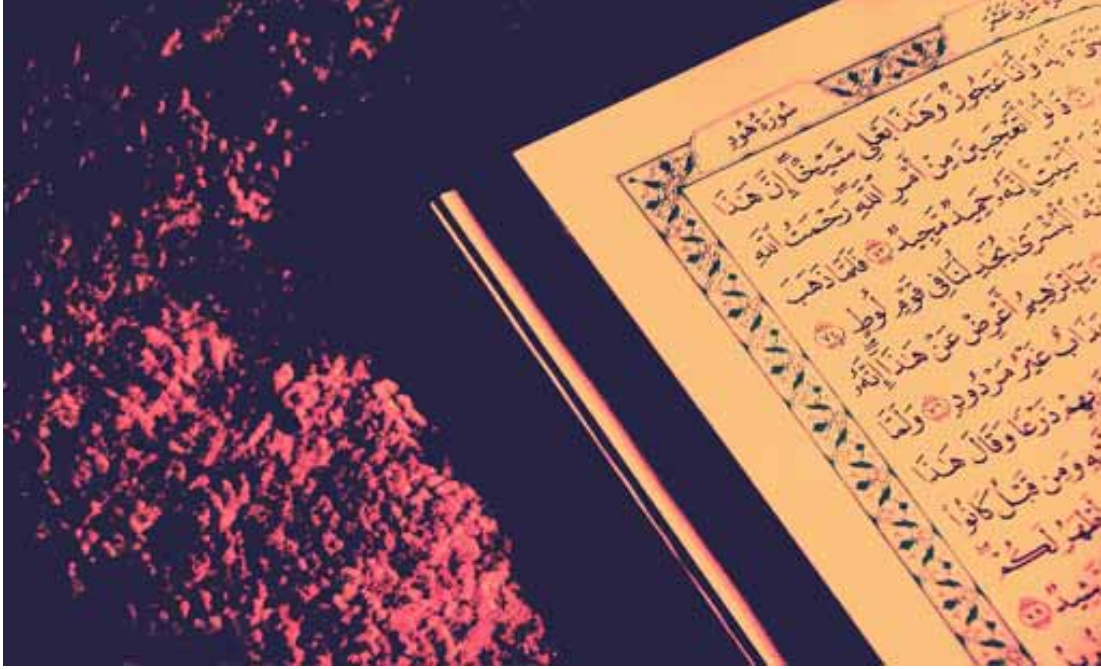 سُورَةُ هُودٍ
وَأَنَا۠ عَجُوزٌ وَهَٰذَا بَعْلِى شَيْخًا إِنَّ هَٰذَا
قَالُوٓا۟ أَتَعْجَبِينَ مِنْ أَمْرِ ٱللَّهِ رَحْمَتُ ٱللَّهِ
ٱلْبَيْتِ إِنَّهُۥ حَمِيدٌ مَّجِيدٌ ٧٣ فَلَمَّا ذَهَبَ
ٱلْبُشْرَىٰ يُجَٰدِلُنَا فِى قَوْمِ لُوطٍ ٧٤
يَٰٓإِبْرَٰهِيمُ أَعْرِضْ عَنْ هَٰذَآ إِنَّهُۥ
عَذَابٌ غَيْرُ مَرْدُودٍ ٧٦ وَلَمَّا
بِهِمْ ذَرْعًا وَقَالَ هَٰذَا
وَمِن قَبْلُ كَانُوا۟
أَطْهَرُ لَكُمْ